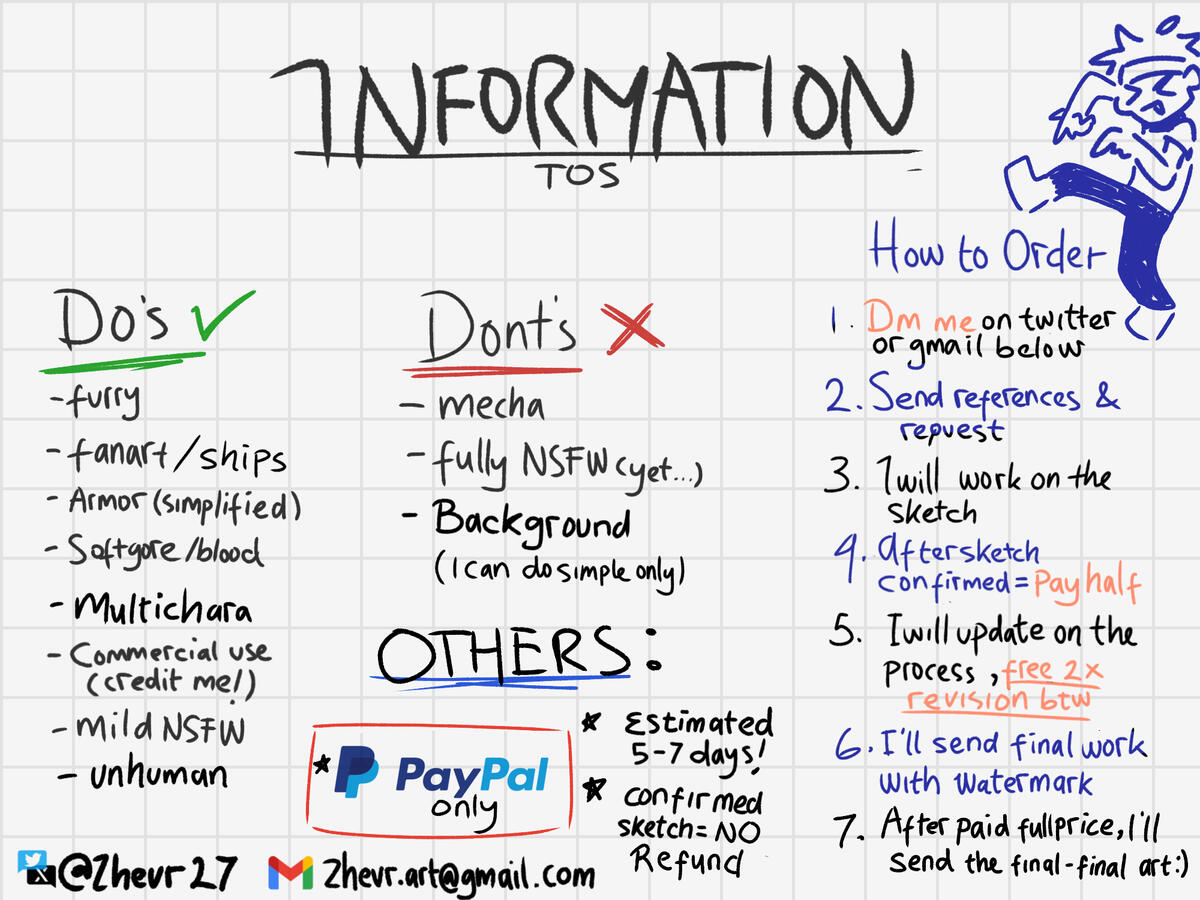 INFORMATION
TOS
Do's
-furry
-fanart/ships
-Armor(simplified)
-Softgore/blood
-Multichara
-Commercial use
(credit me!)
-Mild NSFW
-unhuman
Dont's
-mecha
-fully NSFW(yet...)
-Background
(I can do simple only)
OTHERS:
PayPal
only
Estimated
5-7 days!
confirmed
sketch=NO
Refund
@Zhevr27
Zhevr.art@gmail.com
How to Order
1. Dm me on twitter
or gmail below
2. Send references &
request
3. I will work on the
sketch
4. After sketch
confirmed=Pay half
5. I will update on the
process, free 2x
revision btw
6. I'll send final work
with watermark
7. After paid fullprice, I'll
send the final-final art:)